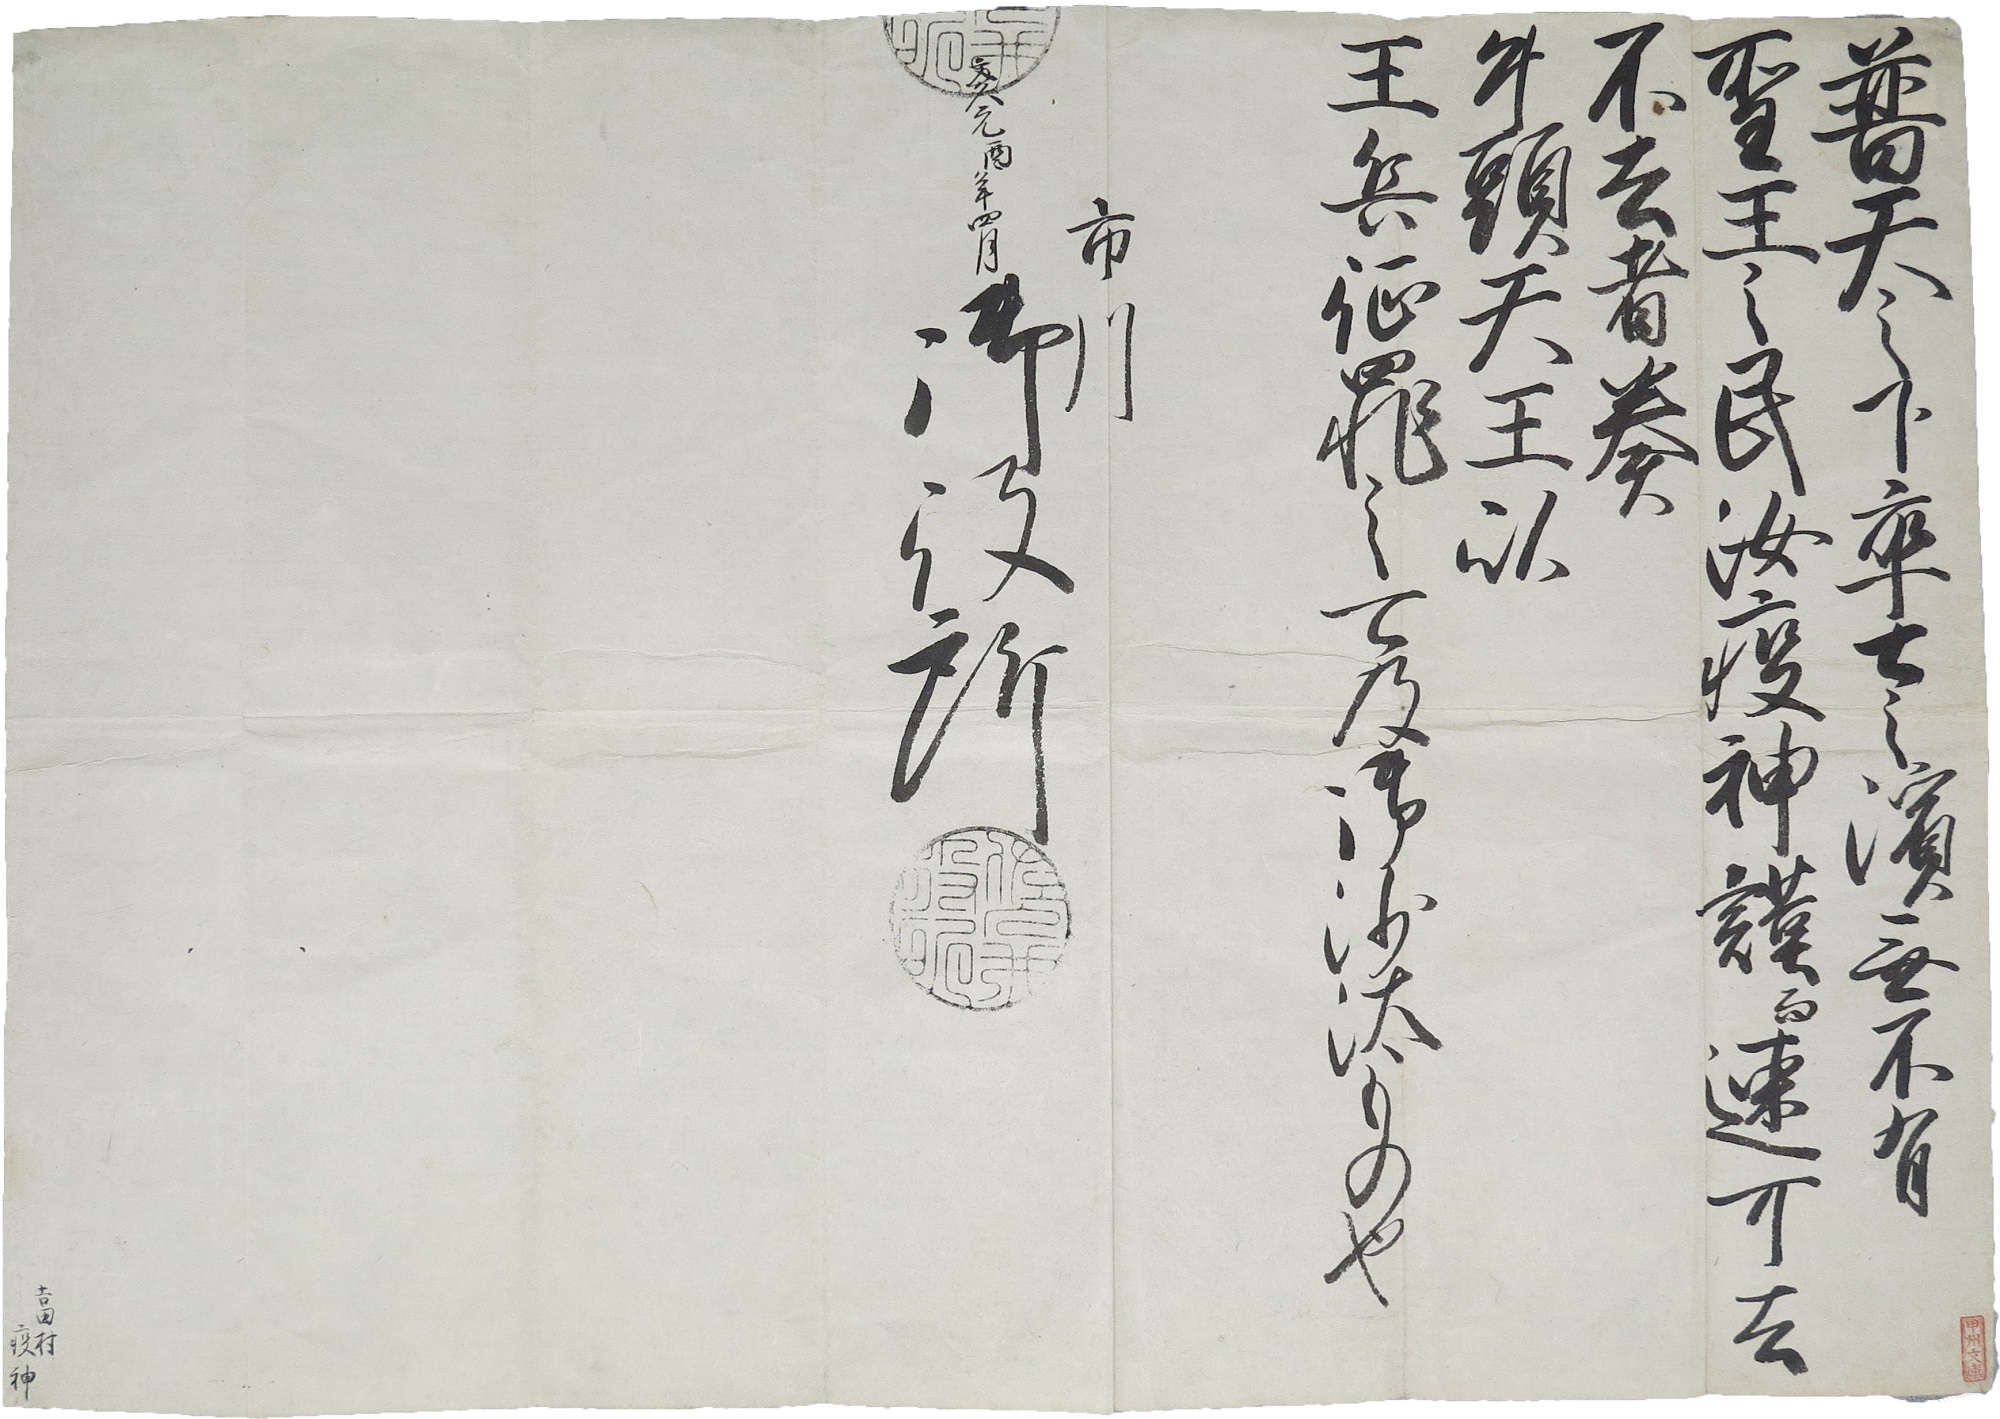 普天之下率土之濱無不有
聖王之民汝疫神謹而速可去
不去者奏
牛頭天王以
王兵征罪之可及御沙汰もの也
市川
御役所
文久元酉年四月
吉田村
疫神
甲州文庫